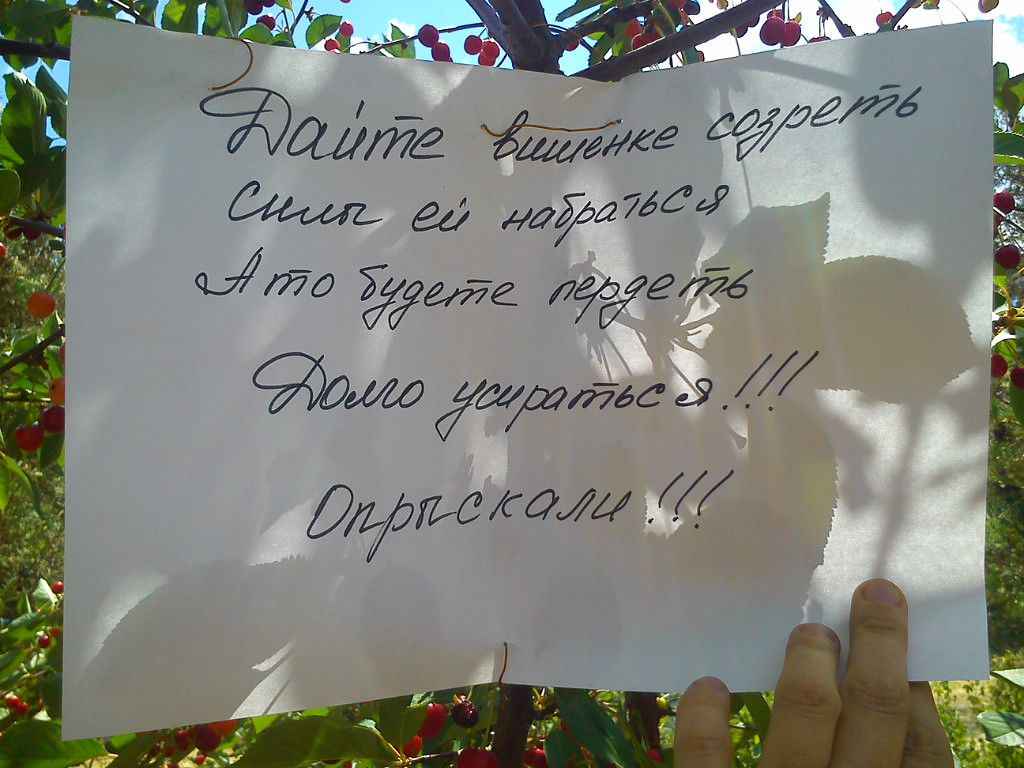 Дайте вишенке созреть
Силы ей набраться
А то будете пердеть
Долго усираться!!!
Опрыскали!!!